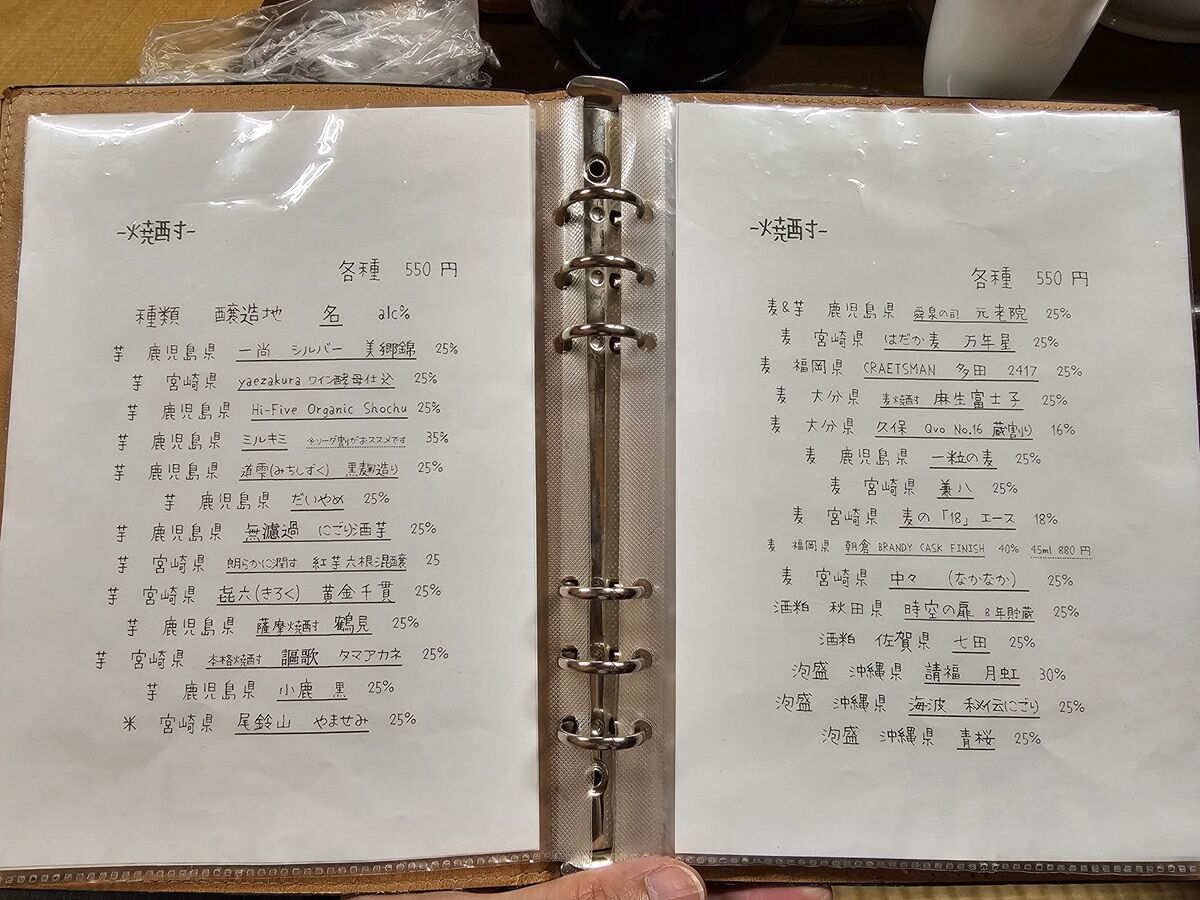 -焼酎-
各種 550 円
種類 醸造地 名 alc%
芋 鹿児島県 一尚 シルバー 美郷錦 25%
芋 宮崎県 yaezakura ワイン酵母仕込 25%
芋 鹿児島県 Hi-Five Organic Shochu 25%
芋 鹿児島県 ミルキミ ※ソーダ割がおススメです 35%
芋 鹿児島県 道雫(みちしずく) 黒麹造り 25%
芋 鹿児島県 だいやめ 25%
芋 鹿児島県 無濾過 にごり酒芋 25%
芋 宮崎県 朗らかに潤す 紅芋六根混醸 25
芋 宮崎県 㐂六(きろく) 黄金千貫 25%
芋 鹿児島県 薩摩焼酎 鶴見 25%
芋 宮崎県 本格焼酎 謳歌 タマアカネ 25%
芋 鹿児島県 小鹿 黒 25%
米 宮崎県 尾鈴山 やませみ 25%
-焼酎-
各種 550 円
麦&芋 鹿児島県 舜泉の司 元老院 25%
麦 宮崎県 はだか麦 万年星 25%
麦 福岡県 CRAETSMAN 多田 2417 25%
麦 大分県 麦焼酎 麻生富士子 25%
麦 大分県 久保 Qvo No.16 蔵割り 16%
麦 鹿児島県 一粒の麦 25%
麦 宮崎県 兼八 25%
麦 宮崎県 麦の「18」エース 18%
麦 福岡県 朝倉 BRANDY CASK FINISH 40% 45ml 880 円
麦 宮崎県 中々 (なかなか) 25%
酒粕 秋田県 時空の扉 8年貯蔵 25%
酒粕 佐賀県 七田 25%
泡盛 沖縄県 請福 月虹 30%
泡盛 沖縄県 海波 秘伝にごり 25%
泡盛 沖縄県 青桜 25%